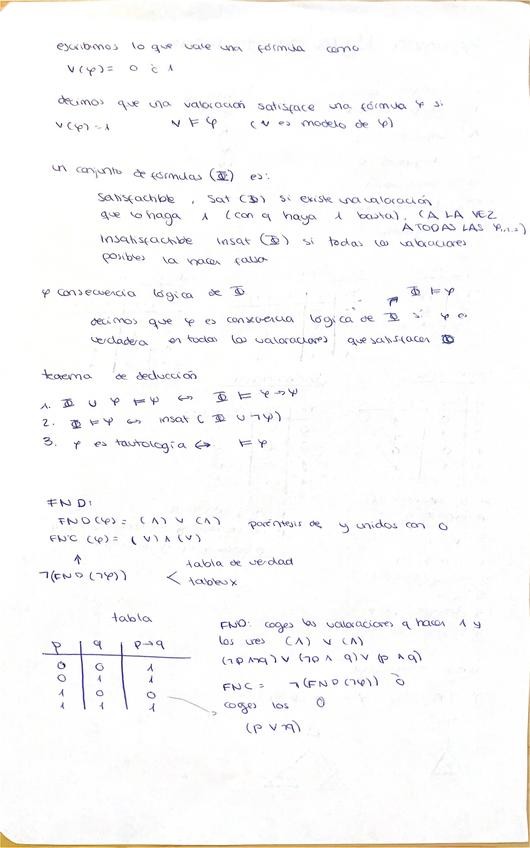 escribimos lo que vale una fórmula como
v(φ) = 0 ó 1
decimos que una valoración satisface una fórmula φ si
v(φ)=1 v ⊨ φ (v es modelo de φ)
un conjunto de fórmulas (Φ) es:
Satisfactible, Sat(Φ) si existe una valoración
que lo haga 1 (con q haya 1 basta). (A LA VEZ
A TODAS LAS φ₁,₂,..)
Insatisfactible insat(Φ) si todas las valoraciones
posibles la hacen falsa
φ consecuencia lógica de Φ Φ ⊨ φ
decimos que φ es consecuencia lógica de Φ si φ es
verdadera en todas las valoraciones que satisfacen Φ
teorema de deducción
1. Φ ∪ φ ⊨ ψ ⇔ Φ ⊨ φ→ψ
2. Φ ⊨ φ ⇔ insat(Φ ∪ ¬φ)
3. φ es tautología ⇔ ⊨ φ
FND:
FND(φ) = (∧) ∨ (∧) paréntesis de y unidos con o
FNC (φ) = (∨) ∧ (∨)
↑
¬(FND(¬φ)) < tabla de verdad
tableux
tabla
p q p→q
0 0 1
0 1 1
1 0 0
1 1 1
FND: coges las valoraciones q hacen 1 y
los unes (∧) ∨ (∧)
(¬p∧¬q) ∨ (¬p ∧ q) ∨ (p ∧ q)
FNC = ¬(FND(¬φ)) ó
coges los 0
(p ∨ ¬q)